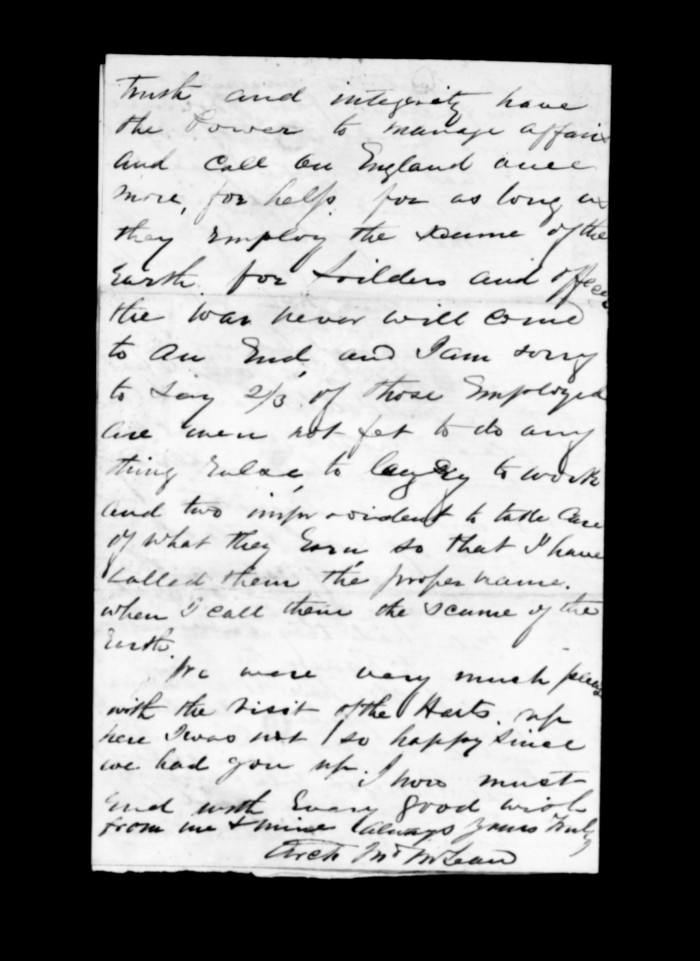 trush and integerity have
the Power to manage affairs
and call on England once
more, for help. for as long as
they Employ the scume of the
Earth. for Soilders and officers
the war never will come
to an End, and I am sorry
to say 2/3 of those Employed
are men not fet to do any
thing Eulse, to lazey to work
and two improvident to take Care
of what they Earn, so that I have
called them the proper name.
when I call them the scume of the
Earth.
We were very much pleas
with the visit of the Harts. up
here I was not so happy since
we had you up. I now must
End with Every good wish
from me & mine always yours Truly
Arch McLean